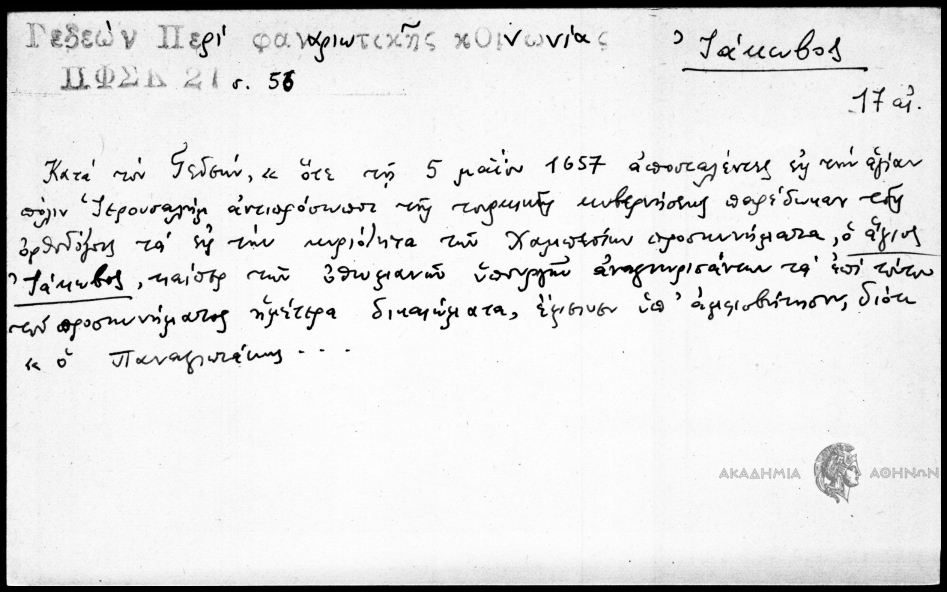 Γεδεών Περί φαναριωτικῆς κοινωνίας
ΠΦΣΚ 21 σ. 56
Ἰάκωβος
17 αἰ.
Κατά τόν Γεδεών, « ὅτε τῇ 5 μαΐου 1657 ἀποσταλέντες εἰς τήν ἁγίαν
πόλιν Ἱερουσαλήμ ἀντιπρόσωποι τῆς τουρκικῆς κυβερνήσεως παρέδωκαν τοῖς
ὀρθοδόξοις τά εἰς τήν κυριότητα τῶν Χαμπεσίων προσκυνήματα, ὁ ἅγιος
Ἰάκωβος, καίπερ τῶν ὀθωμανῶν ὑπουργῶν ἀναγνωρισάντων τά ἐπί τούτου
τοῦ προσκυνήματος ἡμέτερα δικαιώματα, ἔμεινεν ὑπ' ἀμφισβήτησιν, διότι
« ὁ Παναγιωτάκης ...
ΑΚΑΔΗΜΙΑ ΑΘΗΝΩΝ